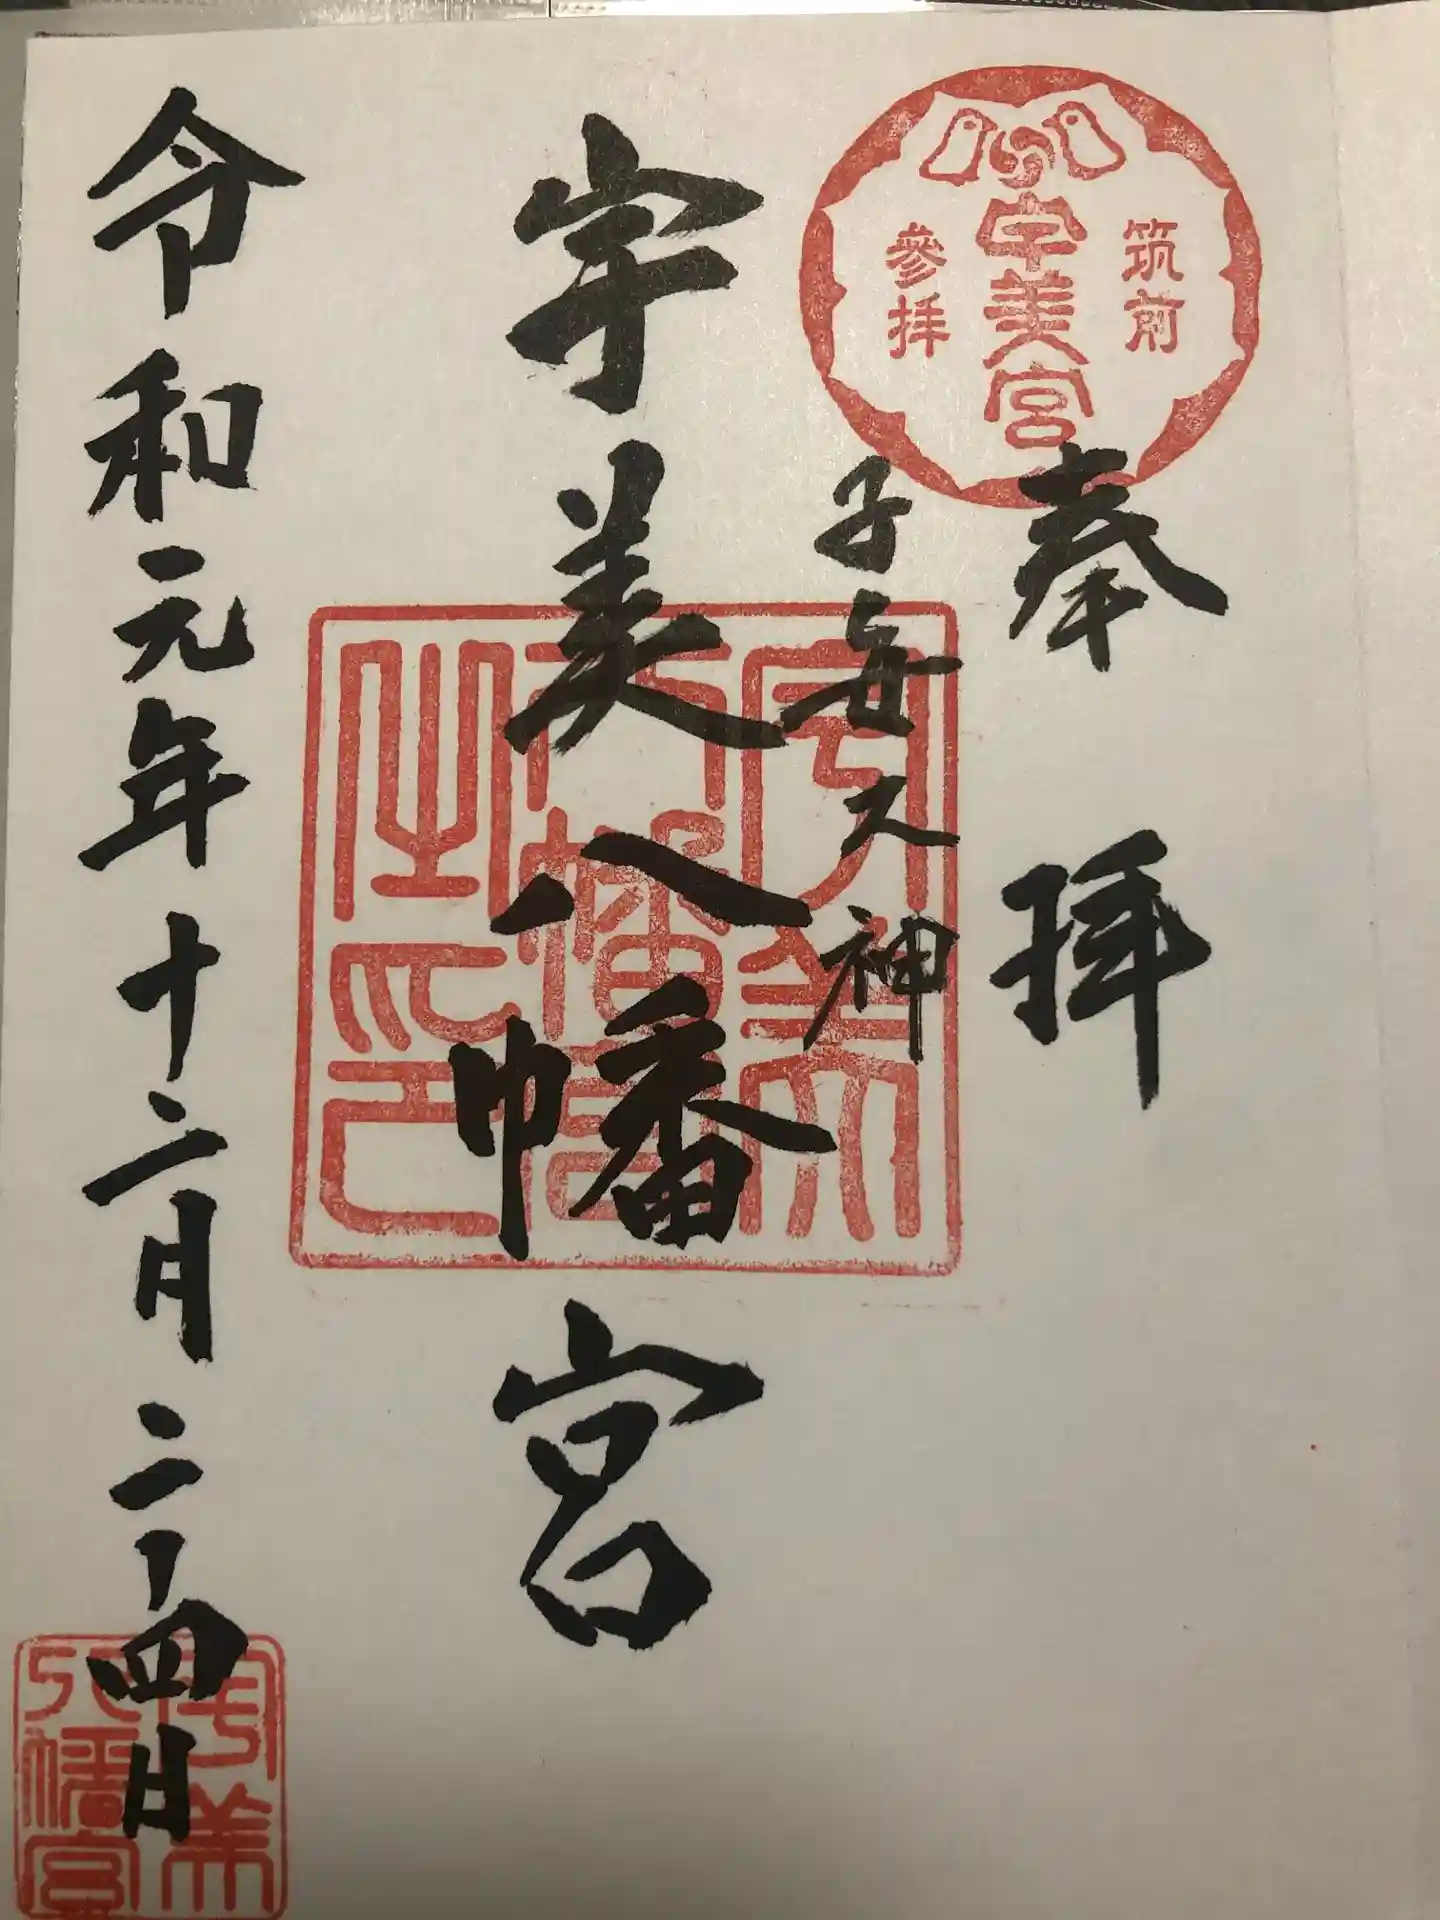 筑前
宇美宮
參拝
奉拝
子安大神
宇美八幡宮
宇美八幡宮之印
令和元年十二月二十四日
宇美八幡宮